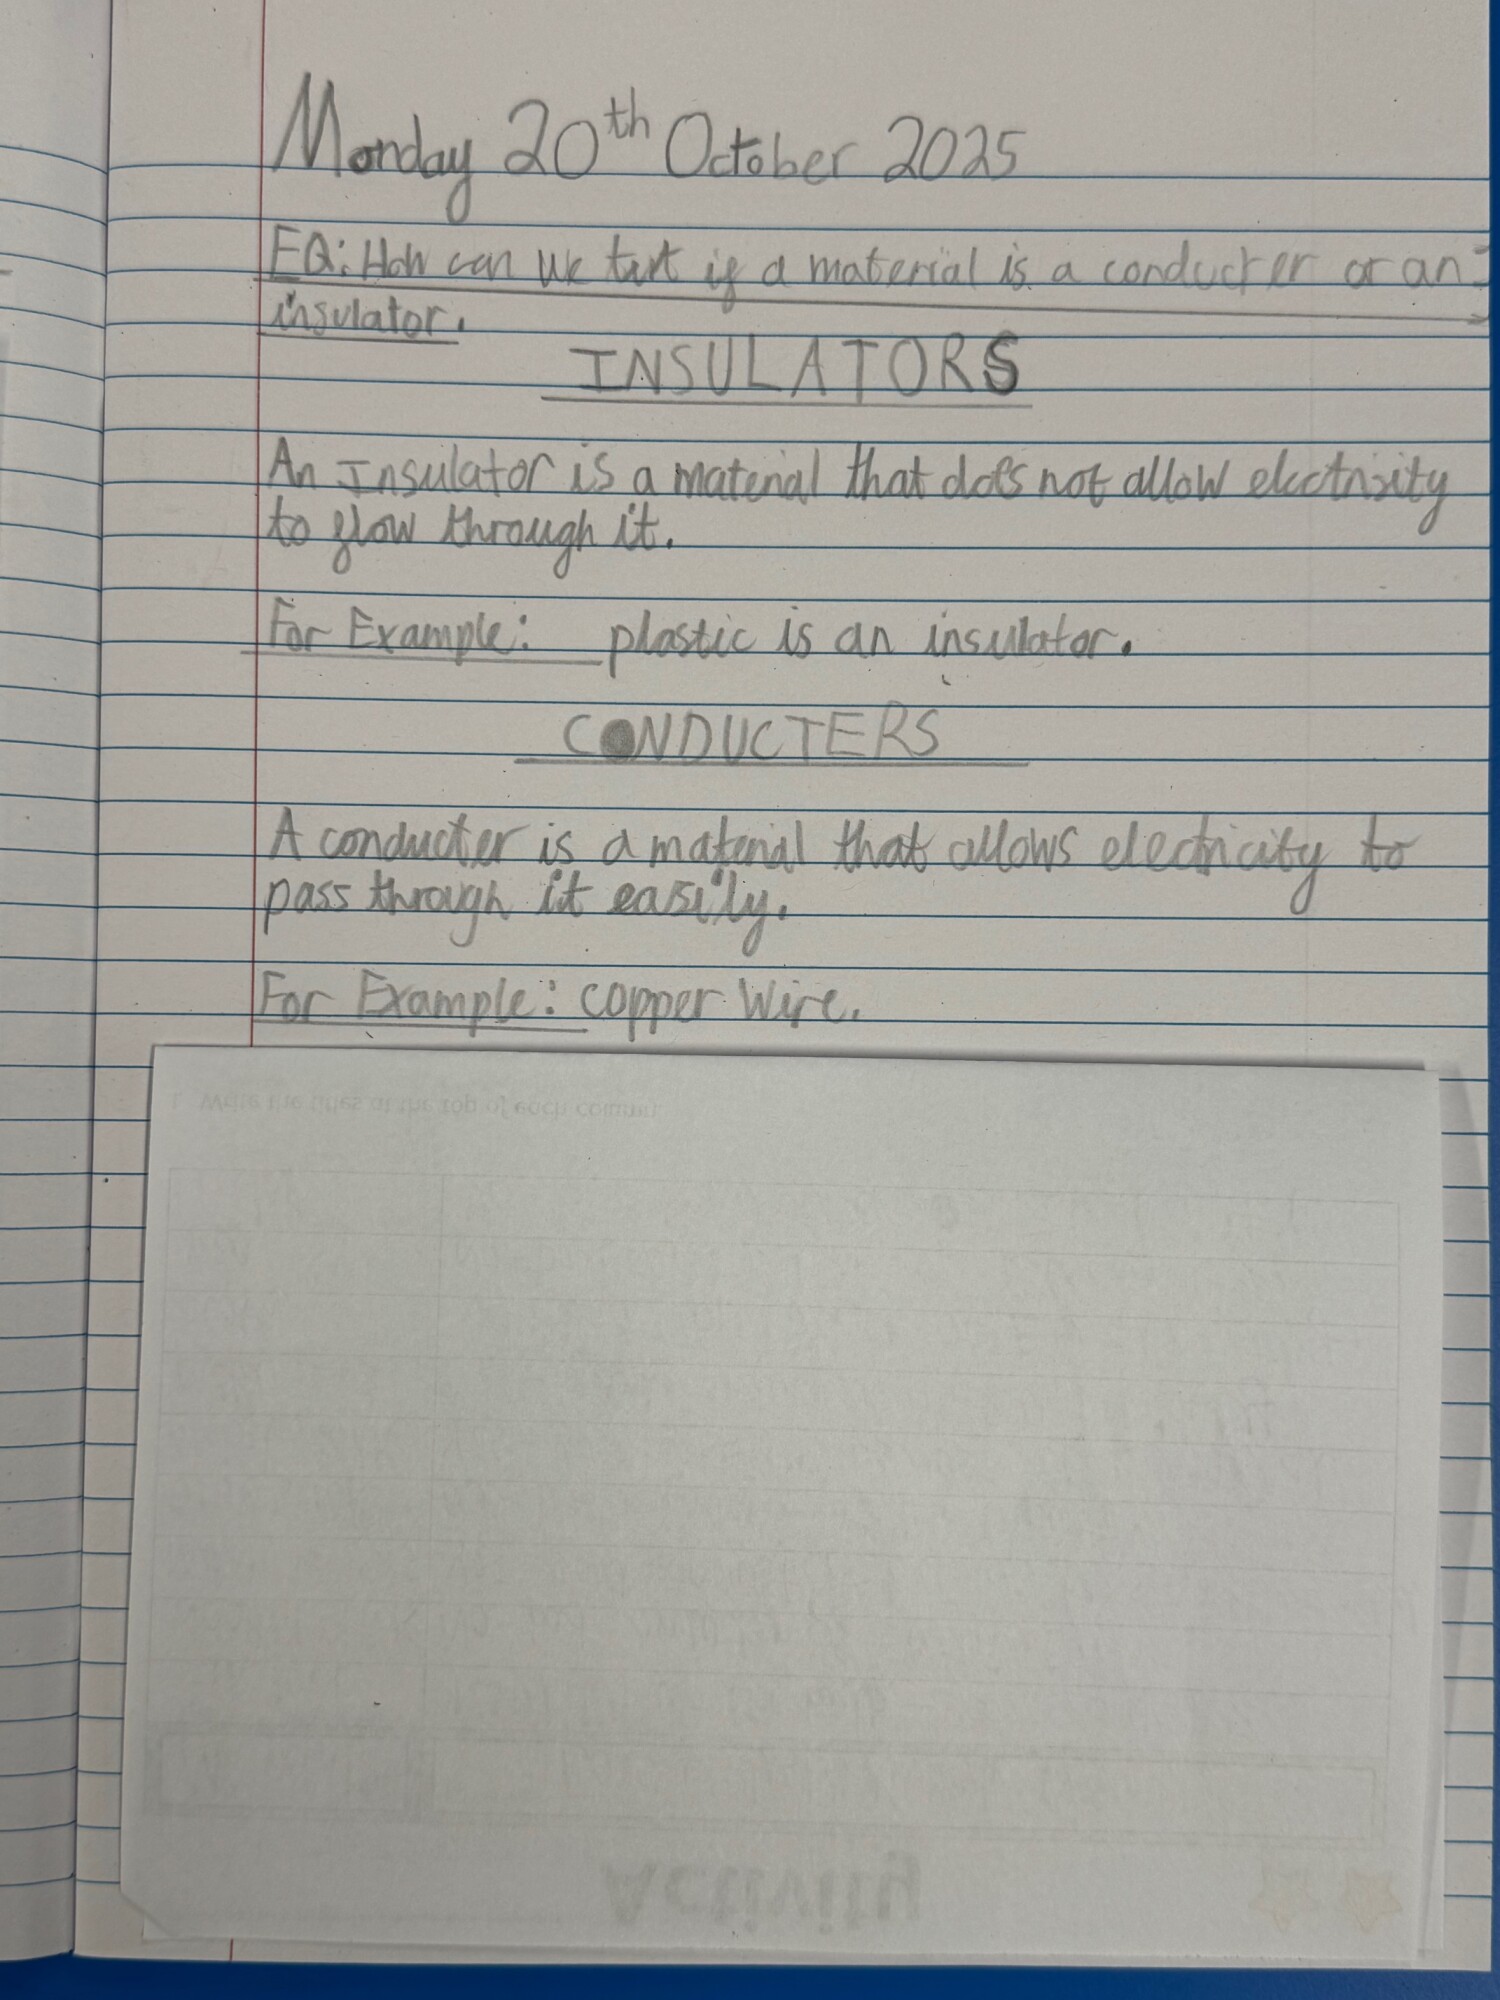 Monday 20th October 2025
EQ: How can we test if a material is a conducter or an
insulator.
INSULATORS
An Insulator is a material that does not allow electrisity
to flow through it.
For Example: plastic is an insulator.
CONDUCTERS
A conducter is a material that allows electricity to
pass through it easily.
For Example: copper wire.
1. Write the titles at the top of each column
Activity